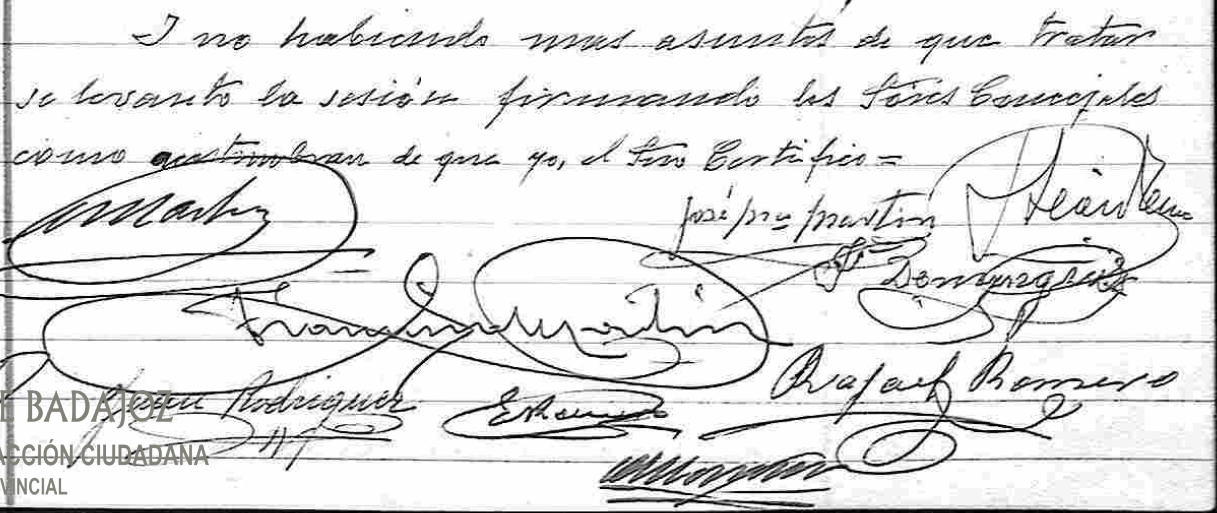 I no habiendo mas asuntos de que tratar
se levanto la sesión firmando los Sores Concejales
como acostumbran de que yo, el Srio Certifico =
José Ma Martin
Fo Dominguez
Francisco Martin
Rafael Romero
Juan Rodriguez
E Romero
E BADAJOZ
ACCIÓN CIUDADANA
VINCIAL